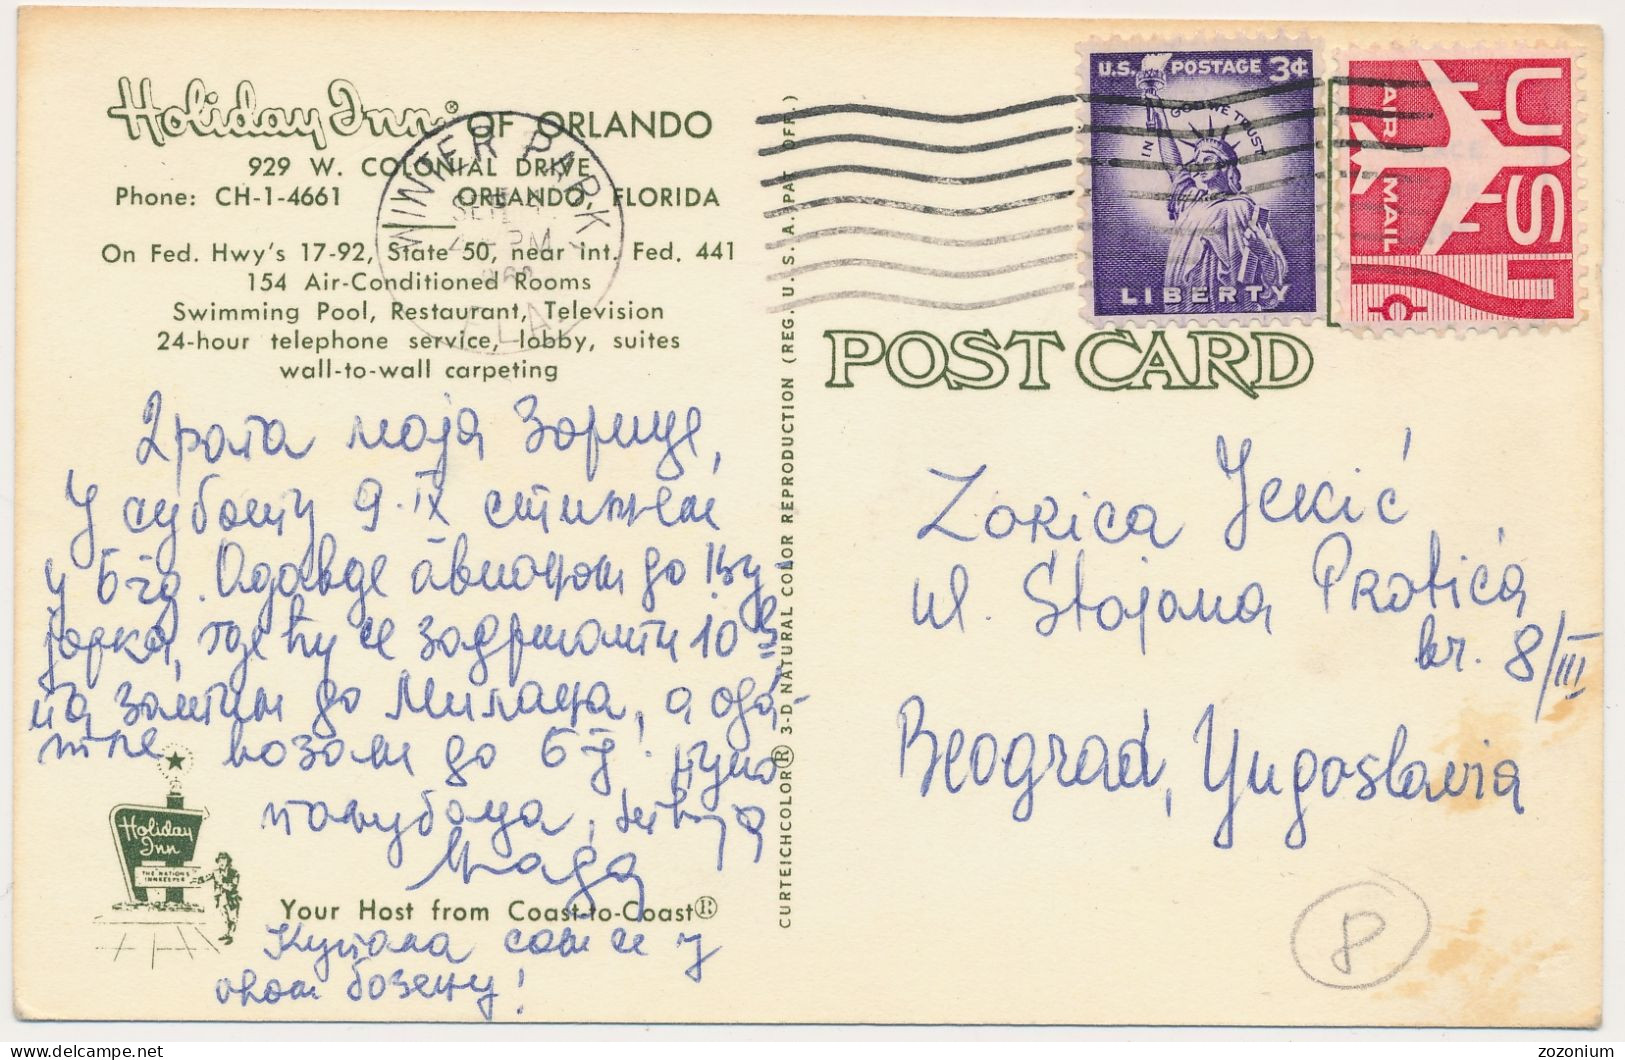 Holiday Inn® OF ORLANDO
929 W. COLONIAL DRIVE
Phone: CH-1-4661 ORLANDO, FLORIDA
On Fed. Hwy's 17-92, State 50, near int. Fed. 441
154 Air-Conditioned Rooms
Swimming Pool, Restaurant, Television
24-hour telephone service, lobby, suites
wall-to-wall carpeting
WINTER PARK
4 - PM
FLA.
моја Зорице,
У суботу 9. IX стижем
у Б-гд. Одавде авионом до Њу
јорка, где ћу се задржати 10
па затим до Милана, а ода-
тле возом до Б-д! Пуно
пољубаца,
Нада
Купала сам се у
овом базену!
Holiday Inn
THE NATION'S INNKEEPER
Your Host from Coast-to-Coast®
CURTEICHCOLOR® 3-D NATURAL COLOR REPRODUCTION (REG. U. S. A. PAT. OFF.)
U.S. POSTAGE 3¢
IN GOD WE TRUST
LIBERTY
US
AIR MAIL
7¢
POST CARD
Zorica Jekić
ul. Stojana Protića
br. 8/III
Beograd, Yugoslavia
8
zozonium.com